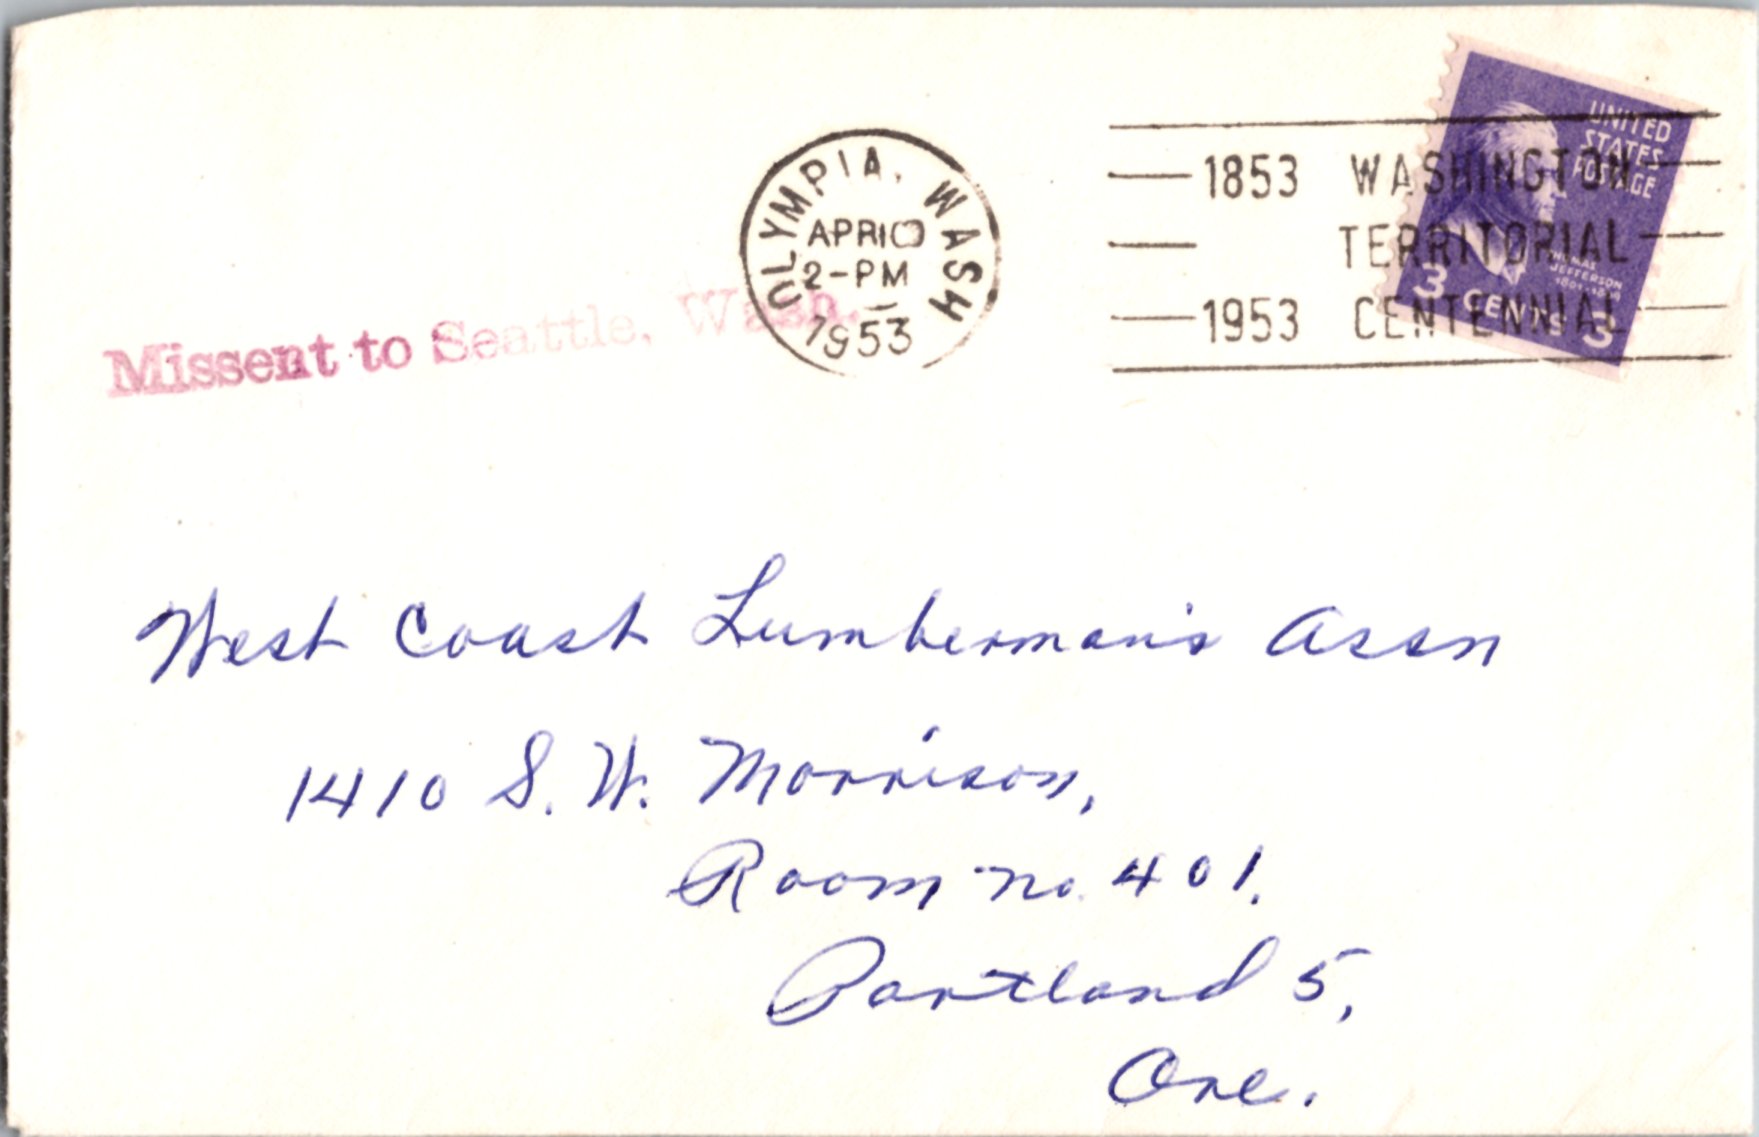 UNITED
STATES
POSTAGE
THOMAS
JEFFERSON
3 CENTS 3
OLYMPIA, WASH
APR 10
2-PM
1953
1853 WASHINGTON
TERRITORIAL
1953 CENTENNIAL
Missent to Seattle, Wash.
West Coast Lumberman's Assn
1410 S. W. Morrison,
Room no. 401.
Portland 5,
Ore.